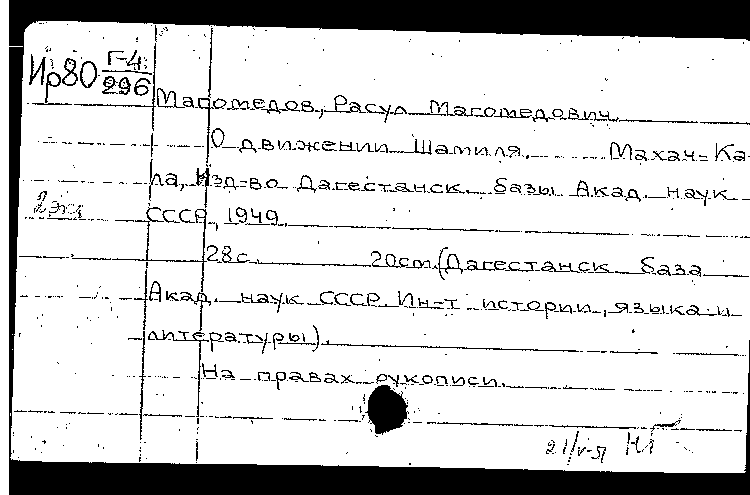 Ир80 Г-4
296
Магомедов, Расул Магомедович.
О движении Шамиля. Махач-Ка-
ла, Изд-во Дагестанск. базы Акад. наук
2 экз
СССР, 1949.
28с. 20см. (Дагестанск. база
Акад. наук СССР. Ин-т истории, языка и
литературы).
На правах рукописи.